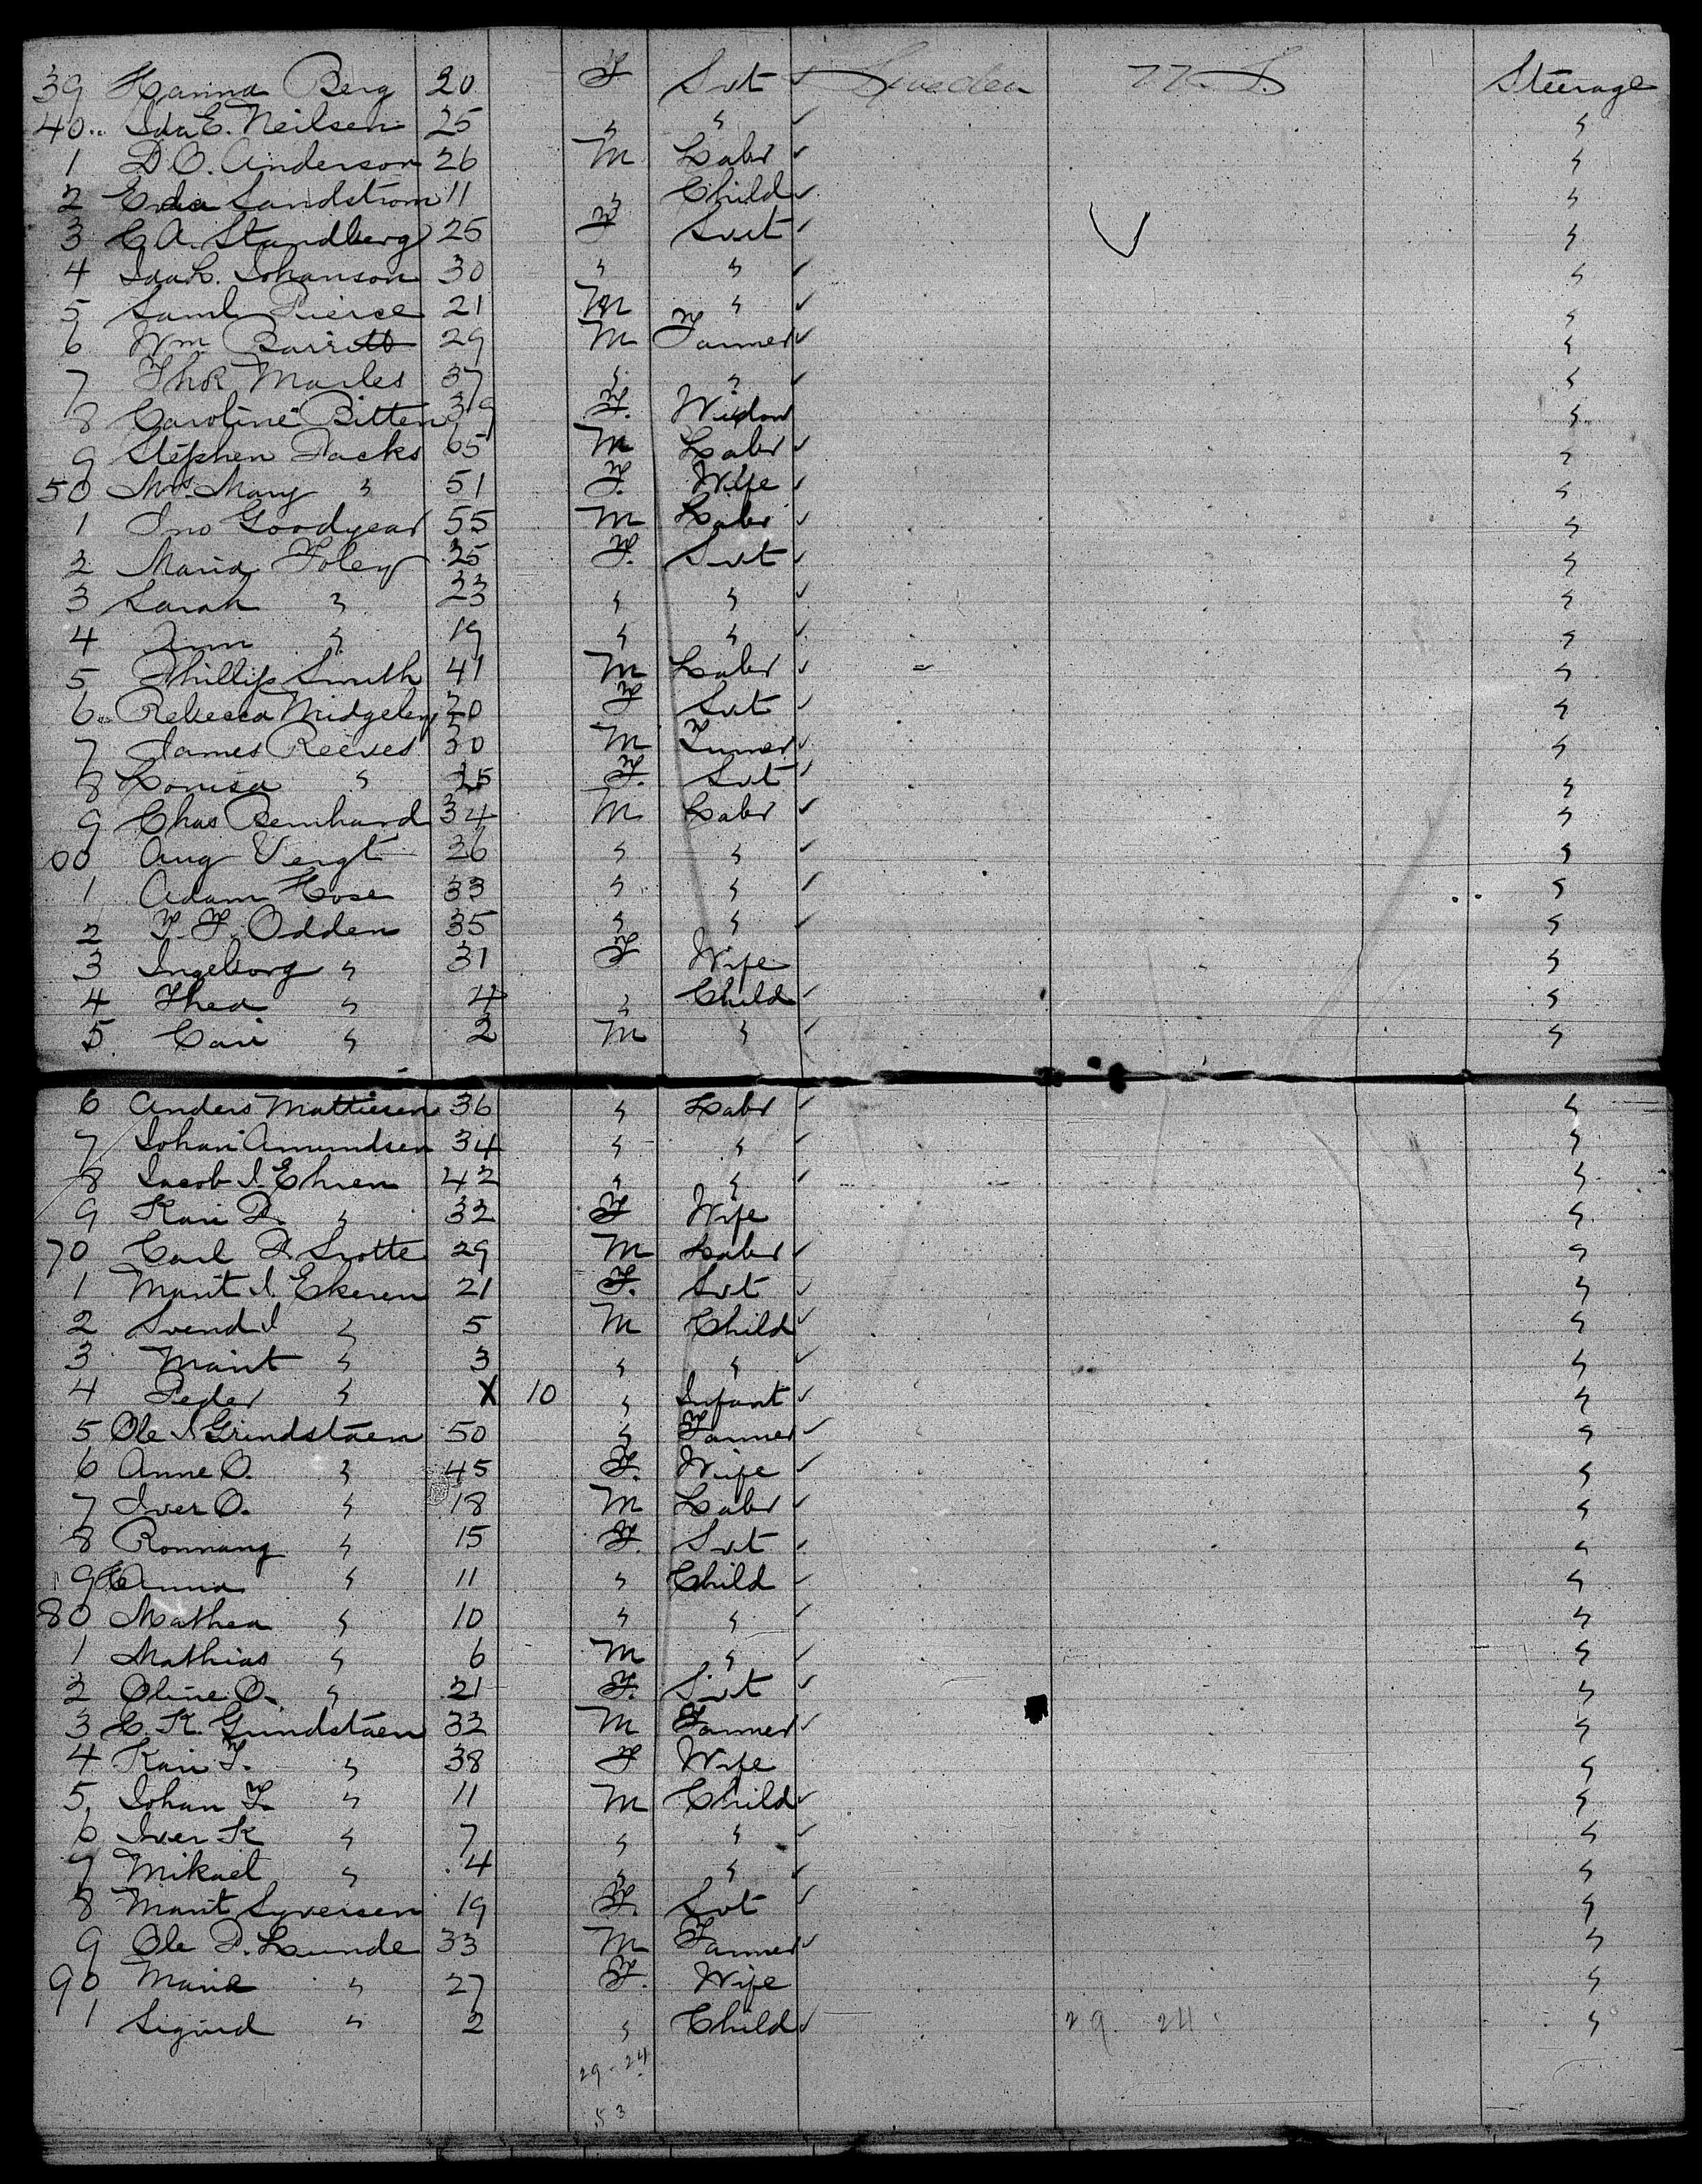 39 Hanna Berg 20 F Svt ✓ Sweden U.S. Steerage
40 Ida E. Neilsen 25 " " ✓ "
1 D O. Anderson 26 M Labr ✓ "
2 Eda Sandstrom 11 " Child ✓ "
3 C A. Standberg 25 F Svt ✓ "
4 Ida L. Johanson 30 " " ✓ "
5 Saml Pierce 21 M " ✓ "
6 Wm Barritt 29 M Farmer ✓ "
7 Thos Marles 37 " " ✓ "
8 Caroline Bitten 39 F. Widow "
9 Stephen Jacks 65 M Labr ✓ "
50 Mrs. Mary " 51 F. Wife ✓ "
1 Jno Goodyear 55 M Labr ✓ "
2 Maria Foley 25 F. Svt ✓ "
3 Sarah " 23 " " ✓ "
4 Ann " 19 " " ✓ "
5 Phillip Smith 41 M Labr ✓ "
6 Rebecca Midgeley 20 F Svt ✓ "
7 James Reeves 30 M Turner ✓ "
8 Louisa " 25 F. Svt ✓ "
9 Chas Bernhard 34 M Labr ✓ "
60 Aug Vergt 26 " " ✓ "
1 Adam Hose 33 " " ✓ "
2 P. F. Odden 35 " " ✓ "
3 Ingeborg " 31 F Wife "
4 Thea " 4 " Child ✓ "
5 Cari " 2 M " ✓ "
6 Anders Mattiesen 36 " Labr ✓ "
7 Johan Amundsen 34 " " ✓ "
8 Jacob J. Ehren 42 " " ✓ "
9 Kari P. " 32 F Wife "
70 Carl P. Srotte 29 M Labr ✓ "
1 Marit J. Ekeren 21 F. Svt ✓ "
2 Svend J " 5 M Child ✓ "
3 Marit " 3 " " ✓ "
4 Peder " X 10 " Infant ✓ "
5 Ole J Grindstaen 50 " Farmer ✓ "
6 Anne O. " 45 F. Wife ✓ "
7 Iver O. " 18 M Labr ✓ "
8 Ronnang " 15 F. Svt ✓ "
9 Anna " 11 " Child ✓ "
80 Mathea " 10 " " ✓ "
1 Mathias " 6 M " ✓ "
2 Oline O. " 21 F. Svt ✓ "
3 C. K. Grindstaen 32 M Farmer ✓ "
4 Kari T. " 38 F Wife "
5 Johan T. " 11 M Child ✓ "
6 Iver K " 7 " " ✓ "
7 Mikael " 4 " " ✓ "
8 Marit Syversen 19 F. Svt ✓ "
9 Ole P. Lunde 33 M Farmer ✓ "
90 Marie " 27 F. Wife "
1 Sigurd " 2 " Child ✓ 29 24 "
29 - 24
53